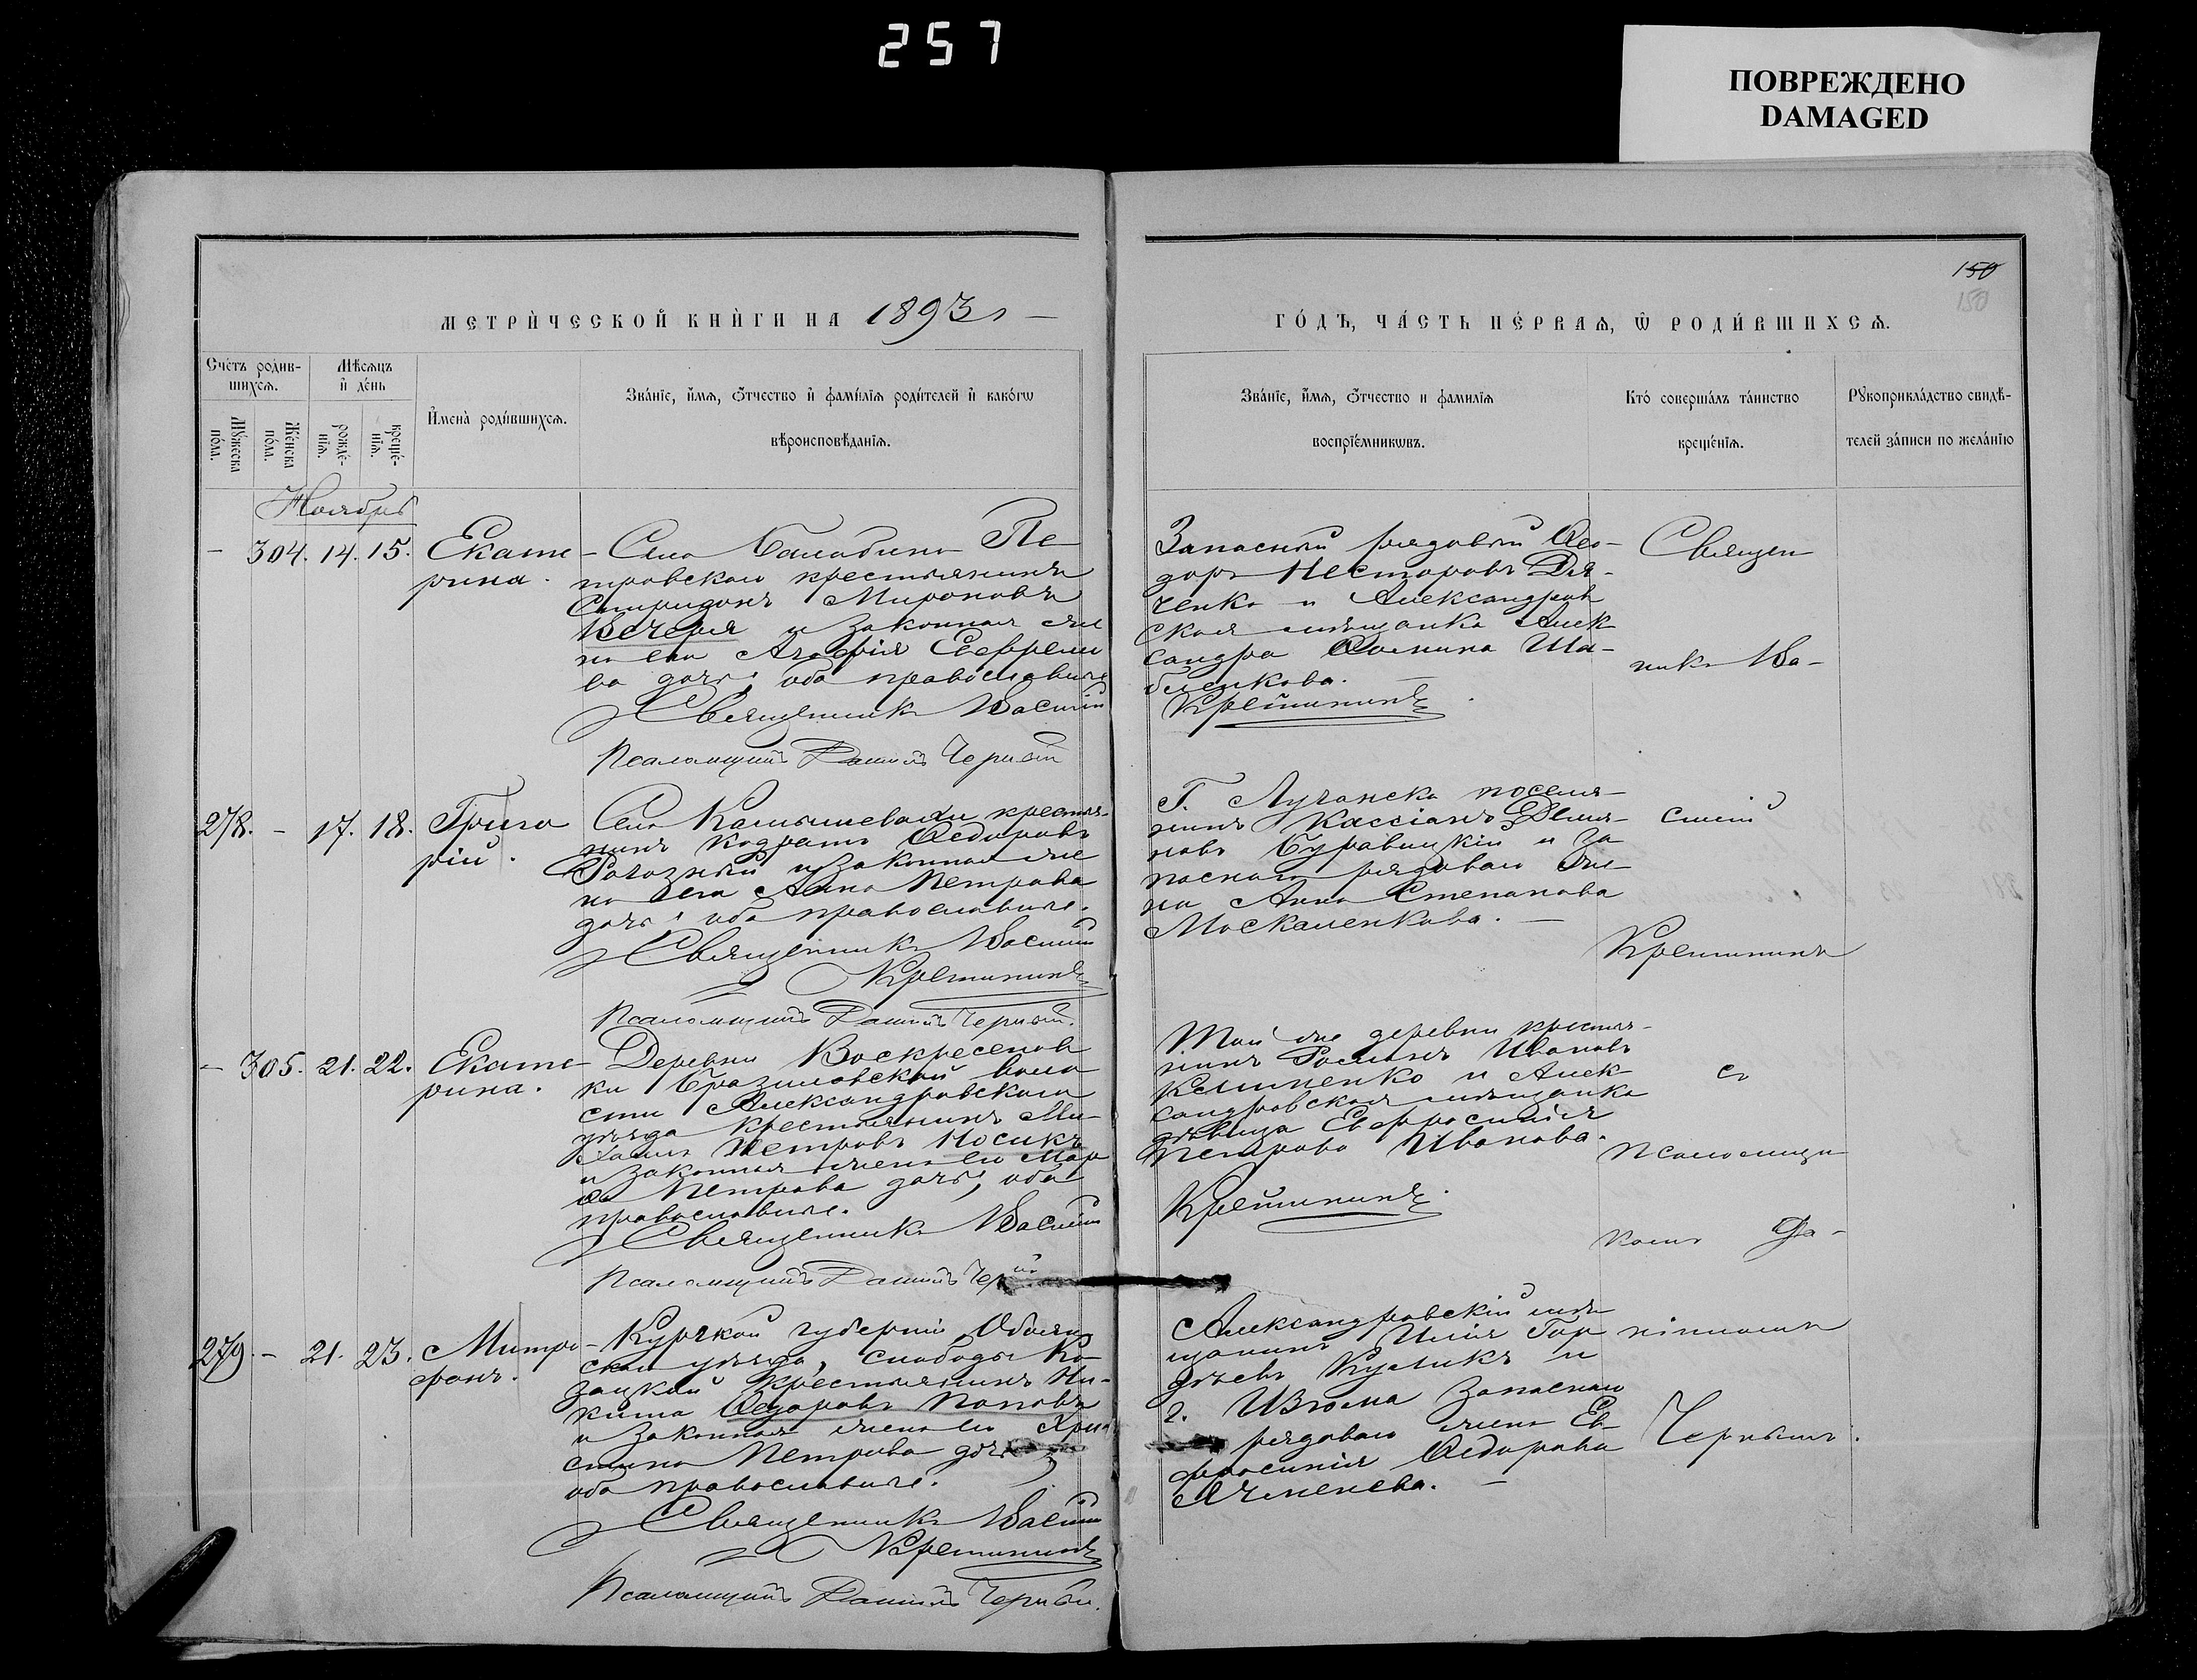 257
ПОВРЕЖДЕНО
DAMAGED
150
150
МЕТРИ́ЧЕСКОЙ КНИ́ГИ НА 1893
ГО́ДЪ, ЧА́СТЬ ПЕ́РВАѦ, Ѿ РОДИ́ВШИХСѦ.
Сче́тъ роди́в-
шихсѧ.
Мѣ́сѧцъ
и҆ де́нь
Мꙋ́жеска
по́ла.
Же́нска
по́ла.
рожде́-
нїѧ.
креще́-
нїѧ.
И҆мена̀ роди́вшихсѧ.
Зва́нїе, и҆́мѧ, ѻ҆́тчество и҆ фамі́лїѧ роди́телей и҆ како́гѡ
вѣроисповѣ́данїѧ.
Зва́нїе, и҆́мѧ, ѻ҆́тчество и фамилїѧ
воспрїе́мникѡвъ.
Кто̀ соверша́лъ та́инство
креще́нїѧ.
Рꙋкоприкла́дство свидѣ́-
телей за́писи по жела́нїю
Ноябрь
- 304. 14. 15. Екате
рина.
Села Балабино Пе
тровскаго крестьянинъ
Спиридонъ Мироновъ
Вечеря и законная же
на его Агафія Евфремо
ва дочь; оба православные
Священникъ Василій
Псаломщикъ Даніилъ Черный
Запасный рядовый Ѳео-
доръ Несторовъ Дя-
ченко и Александров
ская мѣщанка Алек
сандра Ѳомина Ша-
бленкова.
Крещининъ
Священ
никъ Ва-
278. - 17. 18. Григо
рій.
Села Камышевахи крестья-
нинъ Кодратъ Ѳедоровъ
Рогозный и законная же
на его Анна Петрова
дочь; оба православные.
Священникъ Василій
Кретининъ
Псаломщикъ Даніилъ Черный.
Г. Луганска поселя-
нинъ Кассіанъ Демья-
новъ Буравицкій и за
паснаго рядоваго же-
на Анна Степанова
Москаленкова. —
силій
Кретининъ
- 305. 21. 22. Екате
рина.
Деревни Воскресенов
ки Бразоловской воло
сти Александровскаго
уѣзда крестьянинъ Ми-
хаилъ Петровъ Носикъ
и законная жена его Мар
ѳа Петрова дочь; оба
православные.
Священникъ Василій
Псаломщикъ Даніилъ Чер
Той же деревни крестья-
нинъ Романъ Ивановъ
Клименко и Алек
сандровская мѣщанка
дѣвица Евфросинія
Петрова Иванова.
Кретининъ.
съ
псаломщи
комъ Да-
279. - 21. 23. Митро
фанъ.
Курской губерніи Обоян
скаго уѣзда, слободы Ка-
зацкой крестьянинъ Ни-
кита Ѳедоровъ Поповъ
и законная жена его Хри
стина Петрова дочь
оба православные.
Священникъ Василій
Кретининъ
Псаломщикъ Даніилъ Черный.
Александровскій мѣ
щанинъ Илія Гор
дѣевъ Куликъ и
г. Изюма запаснаго
рядоваго жена Ев
фросинія Ѳедорова
Ячменева. —
ніиломъ
Чернымъ.